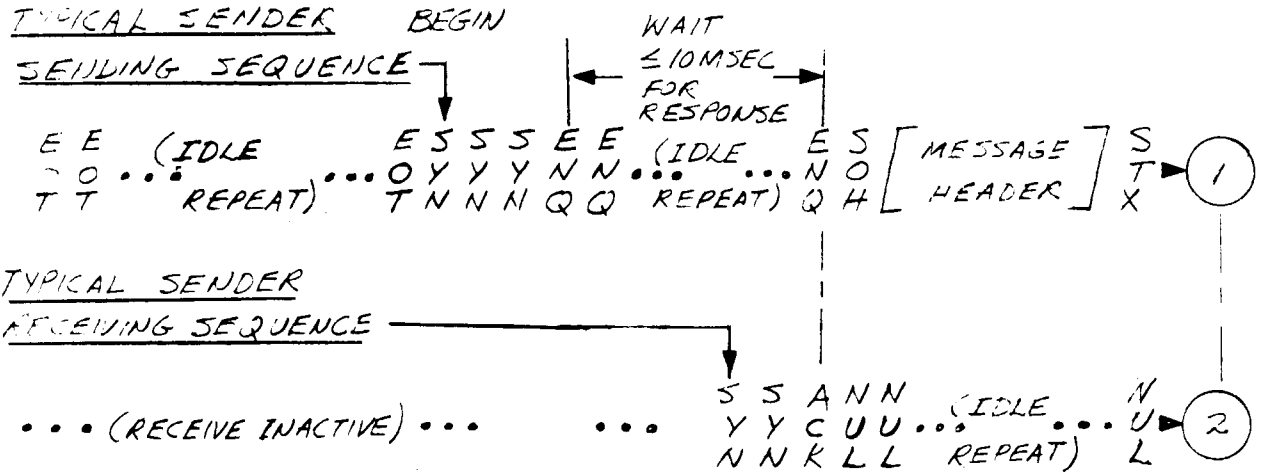 TYPICAL SENDER BEGIN WAIT
SENDING SEQUENCE ≤10MSEC
FOR
RESPONSE
EOT EOT ••• (IDLE REPEAT) ••• EOT SYN SYN SYN ENQ ENQ ••• (IDLE REPEAT) ••• ENQ SOH [MESSAGE HEADER] STX 1
TYPICAL SENDER
RECEIVING SEQUENCE
••• (RECEIVE INACTIVE) ••• ••• SYN SYN ACK NUL NUL ••• (IDLE REPEAT) ••• NUL 2